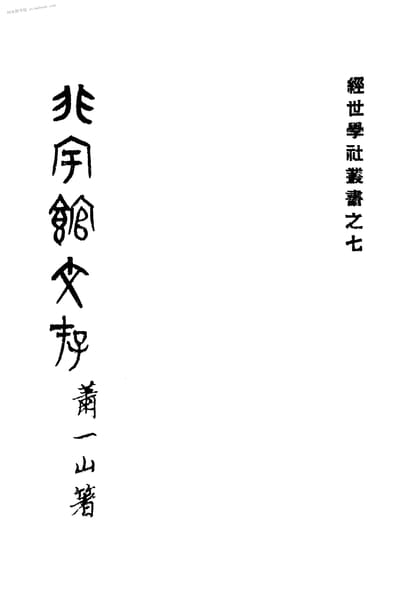 經世學社叢書之七
非宇館文存
蕭一山著